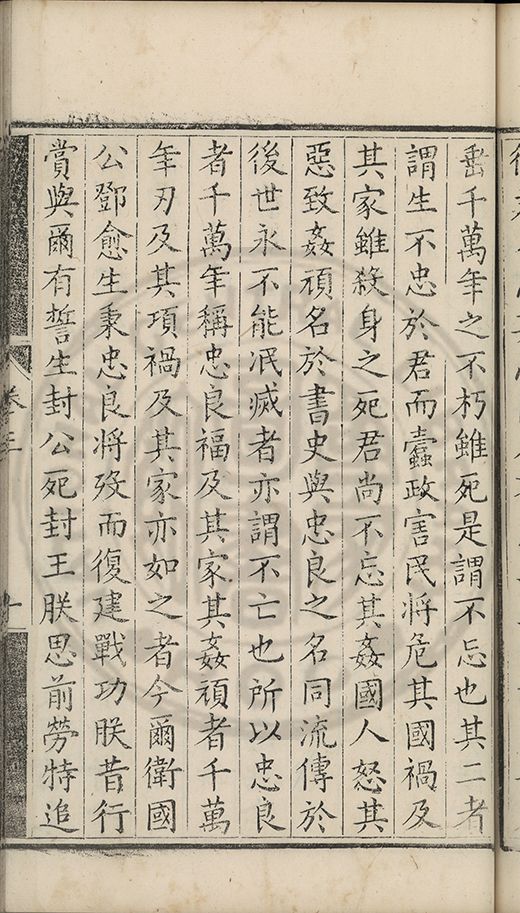 垂千萬年之不朽雖死是謂不忘也其二者
謂生不忠於君而蠧政害民將危其國禍及
其家雖殺身之死君尚不忘其姦國人怒其
惡致姦頑名於書史與忠良之名同流傳於
後世永不能泯滅者亦謂不亡也所以忠良
者千萬年稱忠良福及其家其姦頑者千萬
年刃及其項禍及其家亦如之者今爾衛國
公鄧愈生秉忠良將歿而復建戰功朕昔行
賞與爾有誓生封公死封王朕思前勞特追
卷三